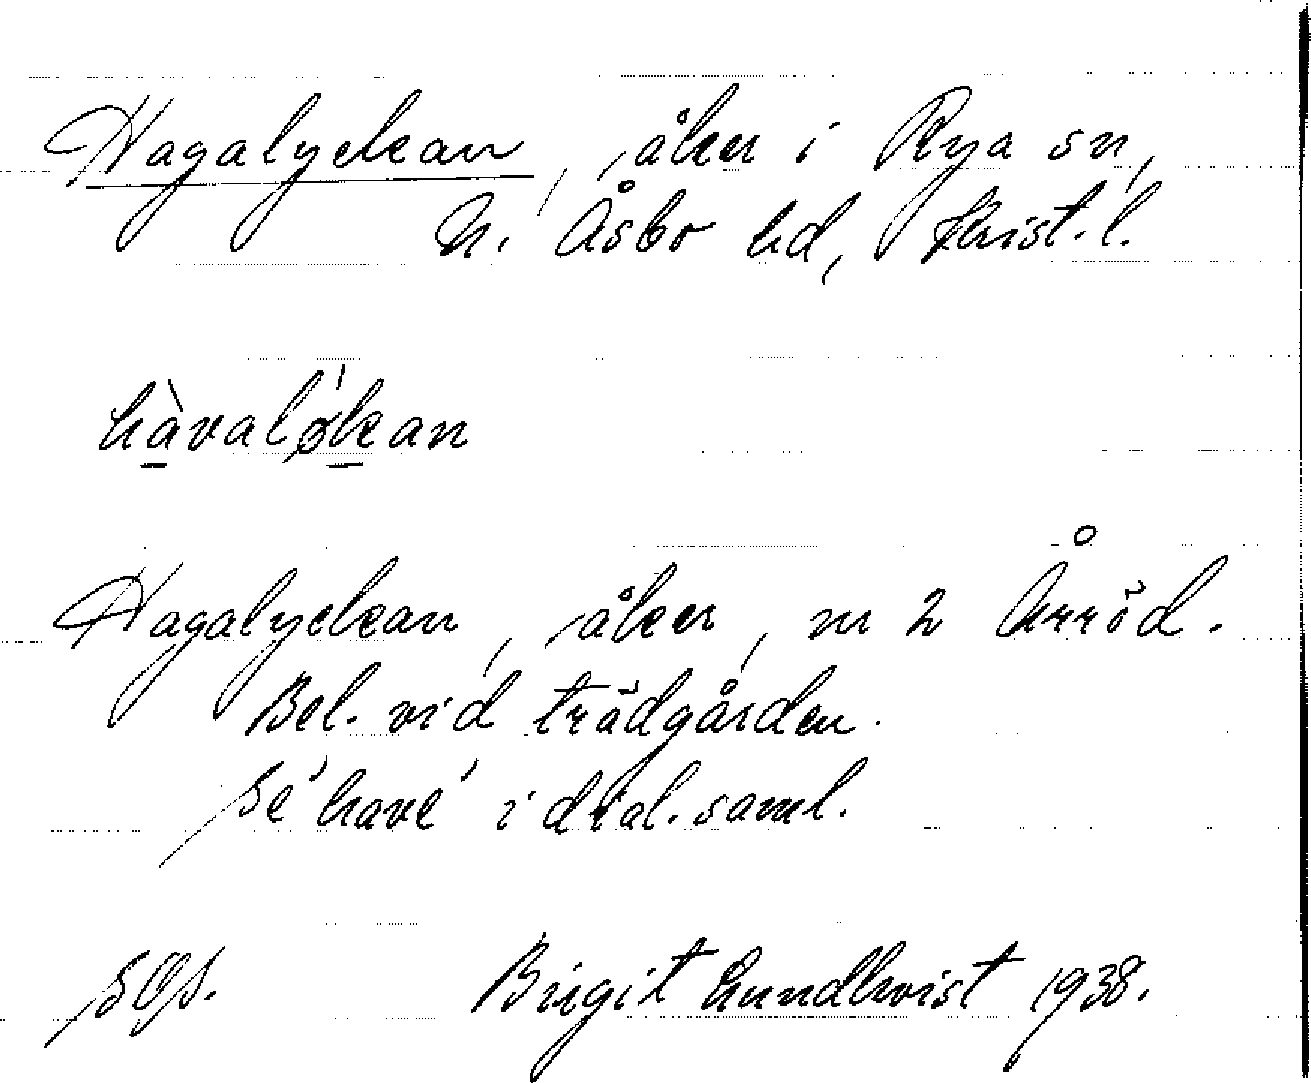 Hagalyckan, åker i Rya sn,
N. Åsbo hd, Krist. l.
hàvaløkan
Hagalyckan, åker, nr 2 Årröd.
Bel. vid trädgården.
Se 'have' i dial. saml.
SOS. Birgit Lundkvist 1938.